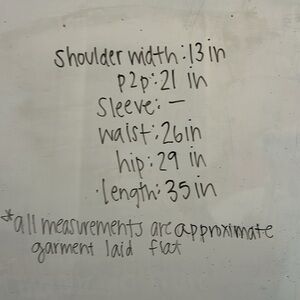 shoulder width: 13 in
p2p: 21 in
sleeve: —
waist: 26in
hip: 29 in
length: 35 in
*all measurements are approximate
garment laid flat